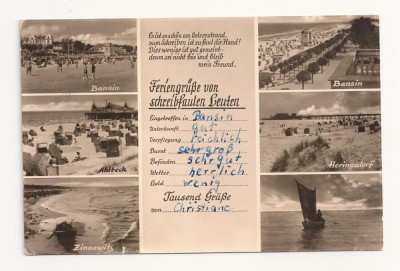 Es ist so schön am Ostseestrand,
zum Schreiben ist zu faul die Hand!
Dies wenige ist gut gemeint -
drum sei nicht bös und bleib
mein Freund.
Feriengrüße von
schreibfaulen Leuten
Eingetroffen in Bansin
Unterkunft gut
Verpflegung reichlich
Durst sehr groß
Befinden sehr gut
Wetter herrlich
Geld wenig
Tausend Grüße
von Christiane
Bansin
Ahlbeck
Zinnowitz
Bansin
Heringsdorf